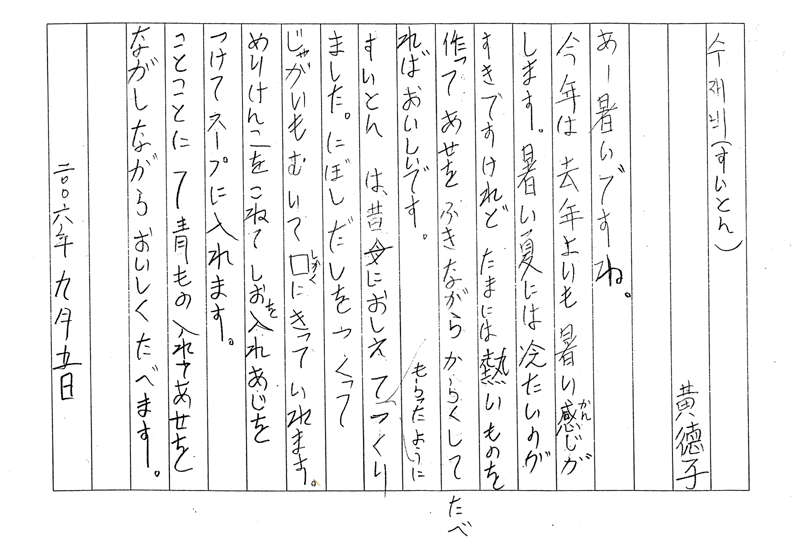 수재비(すいとん)
黄徳子
あー暑いですね。
今年は去年よりも暑い感じが
かん
します。暑い夏には冷たいのが
すきですけれど たまには熱いものを
作って あせを ふきながら からくして たべ
ればおいしいです。
もらったように
すいとん は、昔 母におしえてつくり
ました。にぼし だしをつくって
じゃがいもむいて 口にきっていれます。
しかく
めりけんこをこねて しおを入れあじを
つけてスープに入れます。
ことことにて青もの入れてあせを
ながしながら おいしくたべます。
二〇〇六年 九月五日